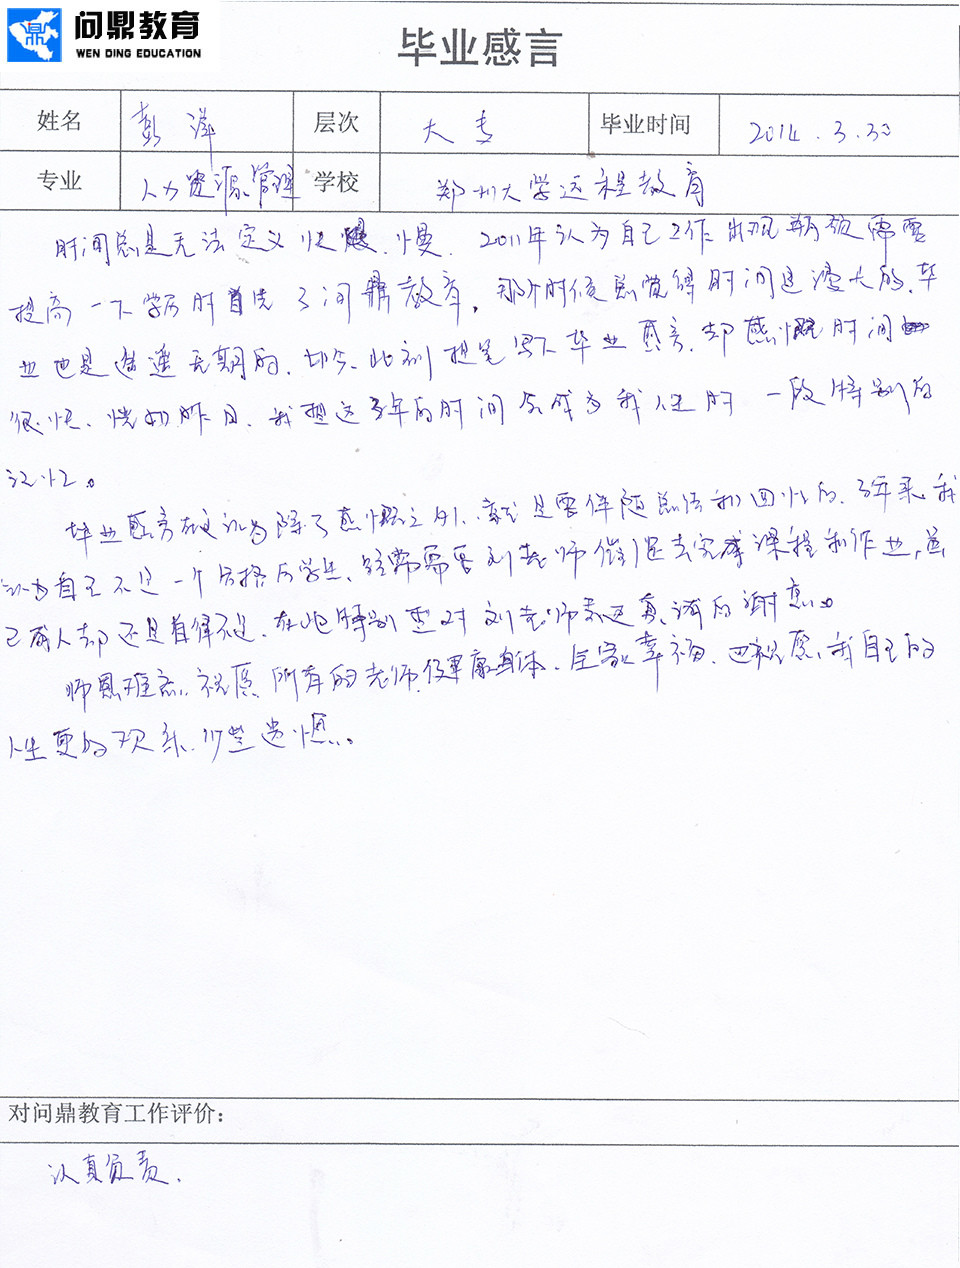 问鼎教育
WEN DING EDUCATION
毕业感言
姓名 彭洋 层次 大专 毕业时间 2014.3.30
专业 人力资源管理 学校 郑州大学远程教育
时间总是无法定义快慢.慢. 2011年认为自己工作出现瓶颈需要
提高一下学历时首选了问鼎教育,那个时候总觉得时间是漫长的.毕
业也是遥遥无期的.如今.此刻提笔写下毕业感言.却感慨时间
很快、恍如昨日.我想这3年的时间会成为我人生的一段特别的
记忆。
毕业感言在我认为除了感慨之外.就是要伴随总结和回忆的.3年来我
认为自己不是一个合格的学生、经常需要刘老师催促去完成课程和作业,虽
已成人却还是自律不足.在此特别要对刘老师表达真诚的谢意。
师恩难忘.祝愿所有的老师们健康身体.全家幸福.也祝愿我自己的
人生更多欢乐.少些遗憾。
对问鼎教育工作评价:
认真负责.